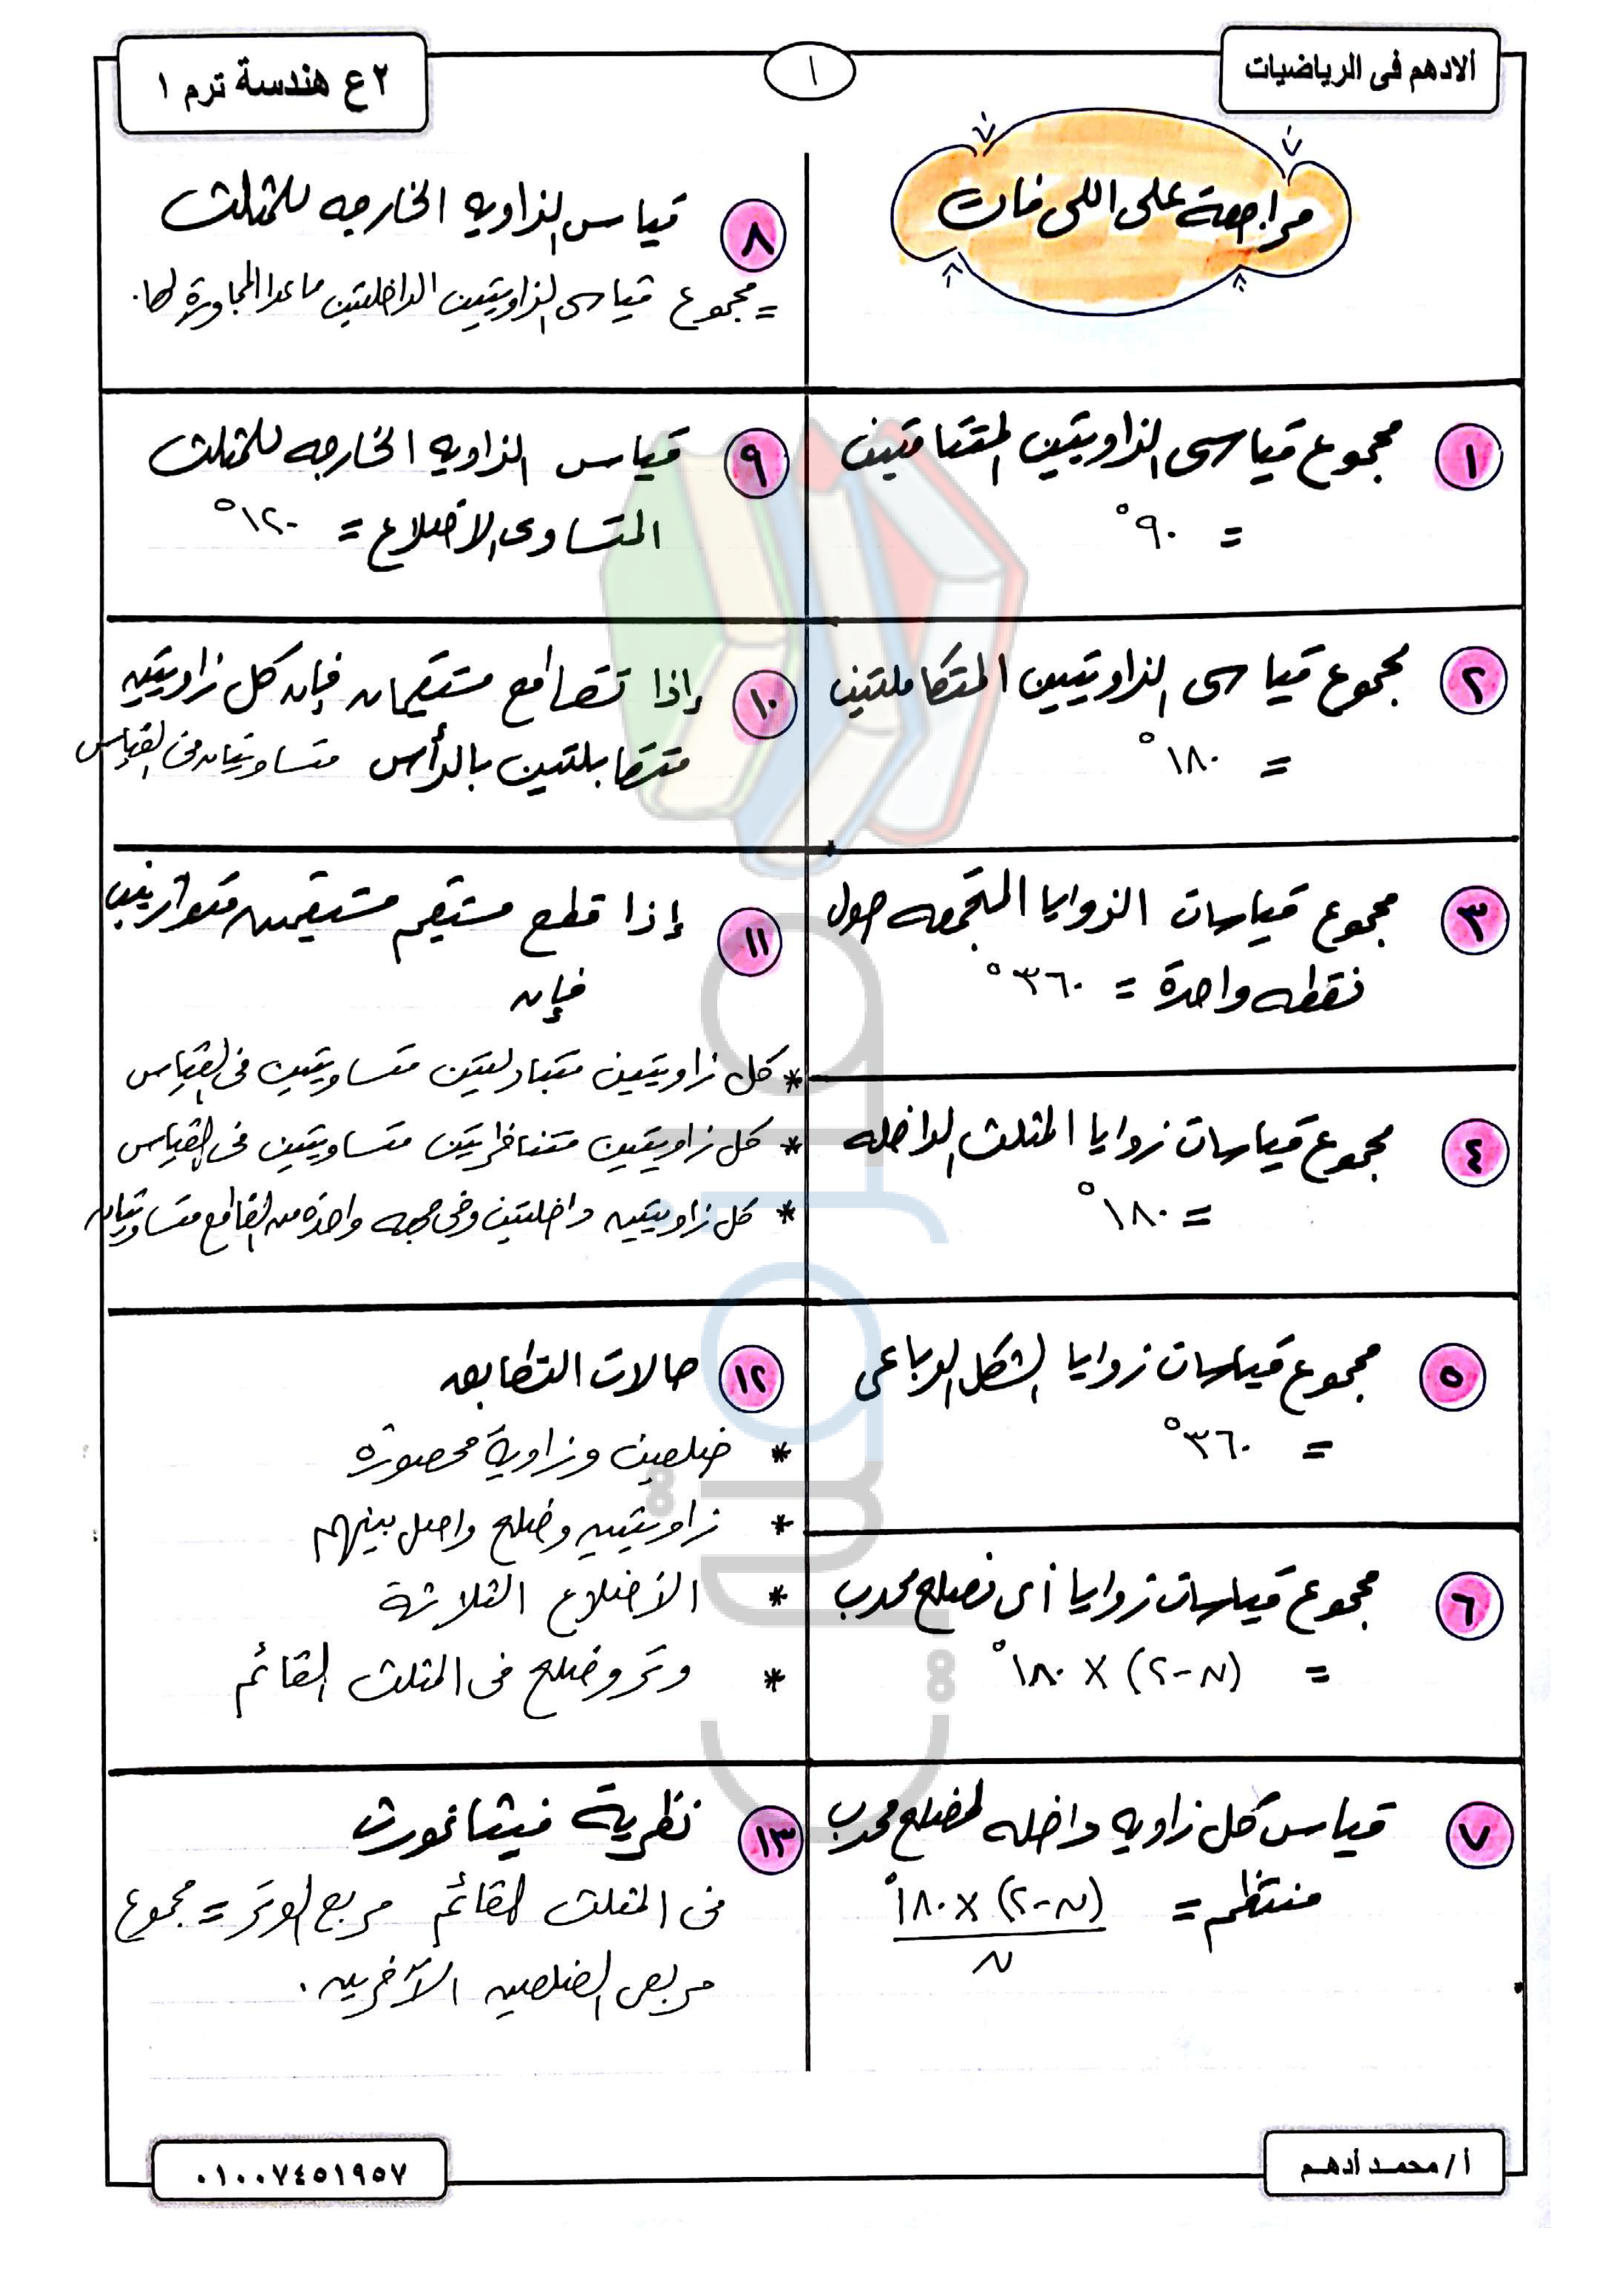 ألادهم فى الرياضيات
١
٢ع هندسة ترم ١
مراجعة على اللى فات
١ مجموع قياسى الزاويتين المتتامتين
= ٩٠°
٢ مجموع قياسى الزاويتين المتكاملتين
= ١٨٠°
٣ مجموع قياسات الزوايا المتجمعه حول
نقطه واحدة = ٣٦٠°
٤ مجموع قياسات زوايا المثلث الداخله
= ١٨٠°
٥ مجموع قياسات زوايا الشكل الرباعى
= ٣٦٠°
٦ مجموع قياسات زوايا أى مضلع محدب
= (ن-٢) × ١٨٠°
٧ قياس كل زاويه داخله لمضلع محدب
منتظم = (ن-٢) × ١٨٠°
ن
٨ قياس الزاويه الخارجه للمثلث
= مجموع قياسى الزاويتين الداخلتين ماعدا المجاورة لها.
٩ قياس الزاويه الخارجه للمثلث
المتساوى الاضلاع = ١٢٠°
١٠ إذا تقاطع مستقيمان فإن كل زاويتين
متقابلتين بالرأس متساويتان فى القياس
١١ إذا قطع مستقيم مستقيمين متوازيين
فإن
* كل زاويتين متبادلتين متساويتين فى القياس
* كل زاويتين متناظرتين متساويتين فى القياس
* كل زاويتين داخلتين وفى جهه واحدة من القاطع متساويتان
١٢ حالات التطابق
* ضلعين وزاوية محصورة
* زاويتين وضلع واصل بينهم
* الأضلاع الثلاثة
* وتر وضلع فى المثلث القائم
١٣ نظرية فيثاغورث
فى المثلث القائم مربع الوتر = مجموع
مربعى الضلعين الآخرين.
أ/محمد أدهم
٠١٠٠٧٤٥١٩٥٧